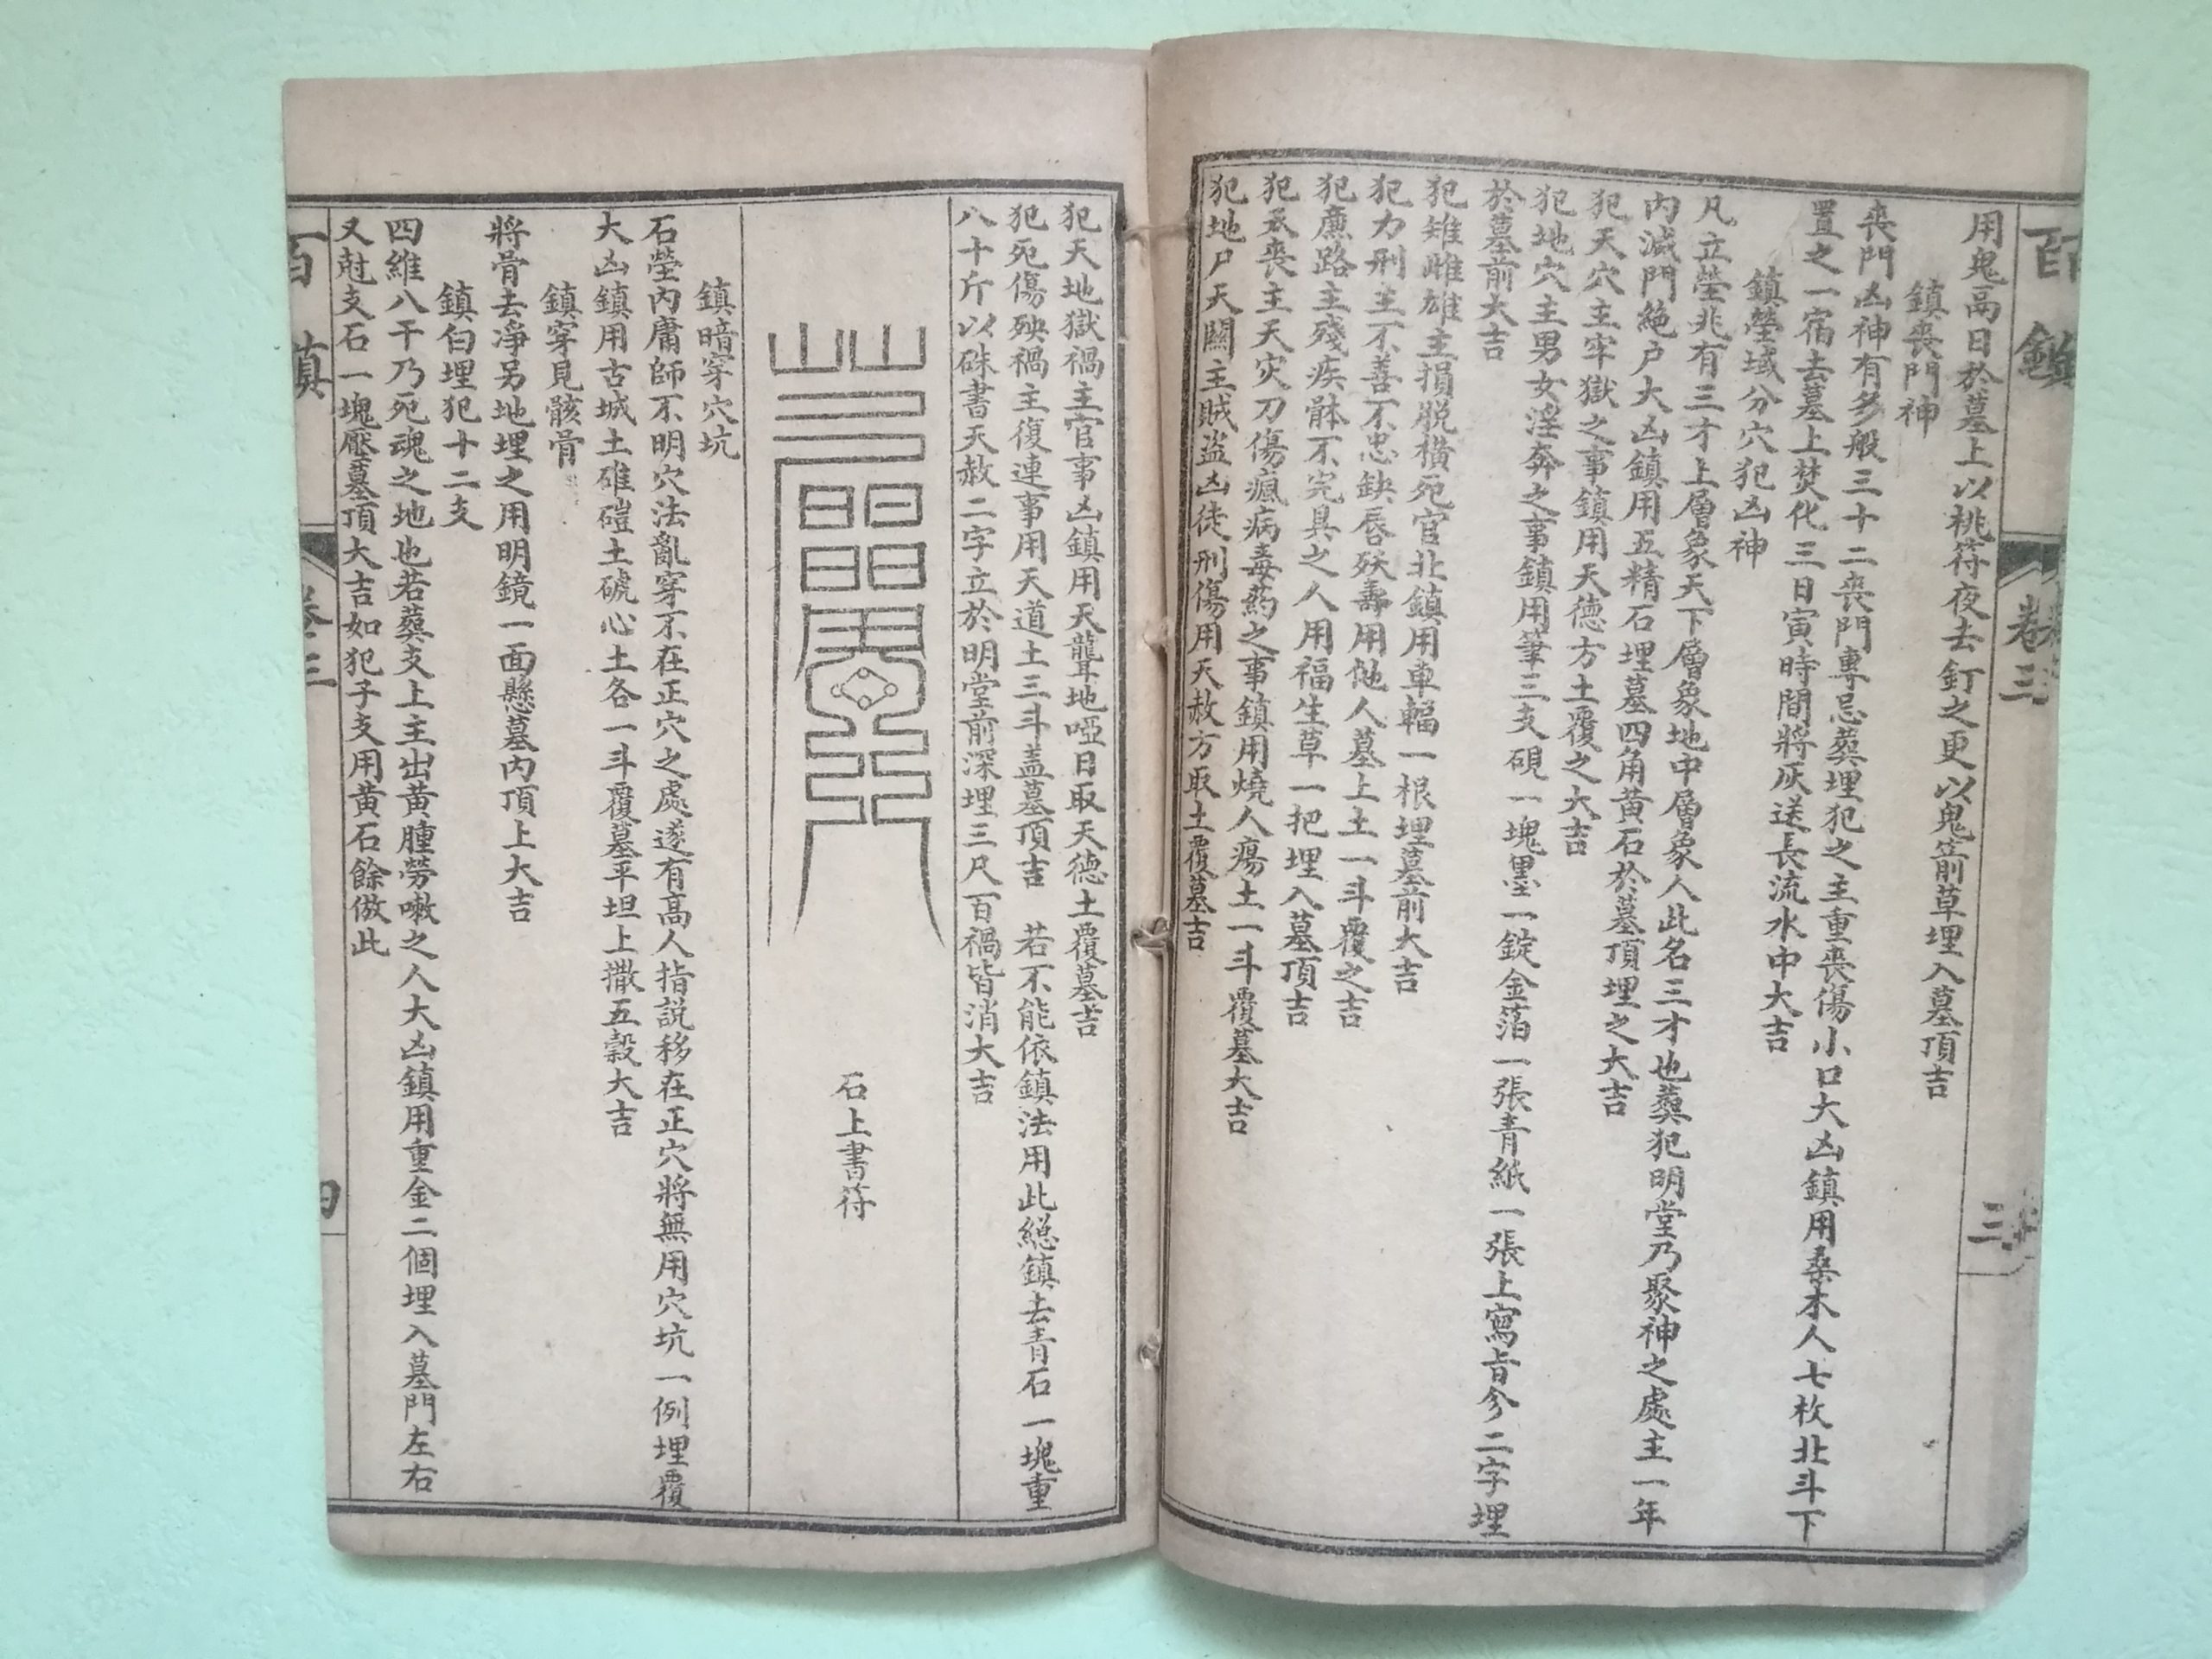 百鎮
卷三
三
用鬼鬲日於墓上以桃符夜去釘之更以鬼箭草埋入墓頂吉
鎮喪門神
喪門凶神有多般三十二喪門專忌葬埋犯之主重喪傷小口大凶鎮用桑木人七枚北斗下
置之一宿去墓上焚化三日寅時間將灰送長流水中大吉
鎮塋域分穴犯凶神
凡立塋兆有三才上層象天下層象地中層象人此名三才也葬犯明堂乃聚神之處主一年
內滅門絶户大凶鎮用五精石埋墓四角黃石於墓頂埋之大吉
犯天穴主牢獄之事鎮用天德方土覆之大吉
犯地穴主男女淫奔之事鎮用筆三支硯一塊墨一錠金箔一張青紙一張上寫㫖今二字埋
於墓前大吉
犯雉雌雄主損脱橫死官北鎮用車輻一根埋墓前大吉
犯力刑主不善不忠缺唇殀壽用他人墓上土一斗覆之吉
犯廉路主殘疾骵不完具之人用福生草一把埋入墓頂吉
犯丞喪主天灾刀傷瘋病毒葯之事鎮用燒人瘍土一斗覆墓大吉
犯地尸天關主賊盜凶徒刑傷用天赦方取土覆墓吉
犯天地獄禍主官事凶鎮用天聾地啞日取天德土覆墓吉
犯死傷殃禍主復連事用天道土三斗盖墓頂吉　若不能依鎮法用此緫鎮去青石一塊重
八十斤以硃書天赦二字立於明堂前深埋三尺百禍皆消大吉
石上書符
鎮暗穿穴坑
石塋內庸師不明穴法亂穿不在正穴之處遂有高人指説移在正穴將無用穴坑一例埋覆
大凶鎮用古城土碓磑土磃心土各一斗覆墓平坦上撒五穀大吉
鎮穿見骸骨
將骨去淨另地埋之用明鏡一面懸墓內頂上大吉
鎮白埋犯十二支
四維八干乃死魂之地也若葬支上主出黃腫勞嗽之人大凶鎮用重金二個埋入墓門左右
又尅支石一塊壓墓頂大吉如犯子支用黃石餘倣此
百鎮
卷三
四